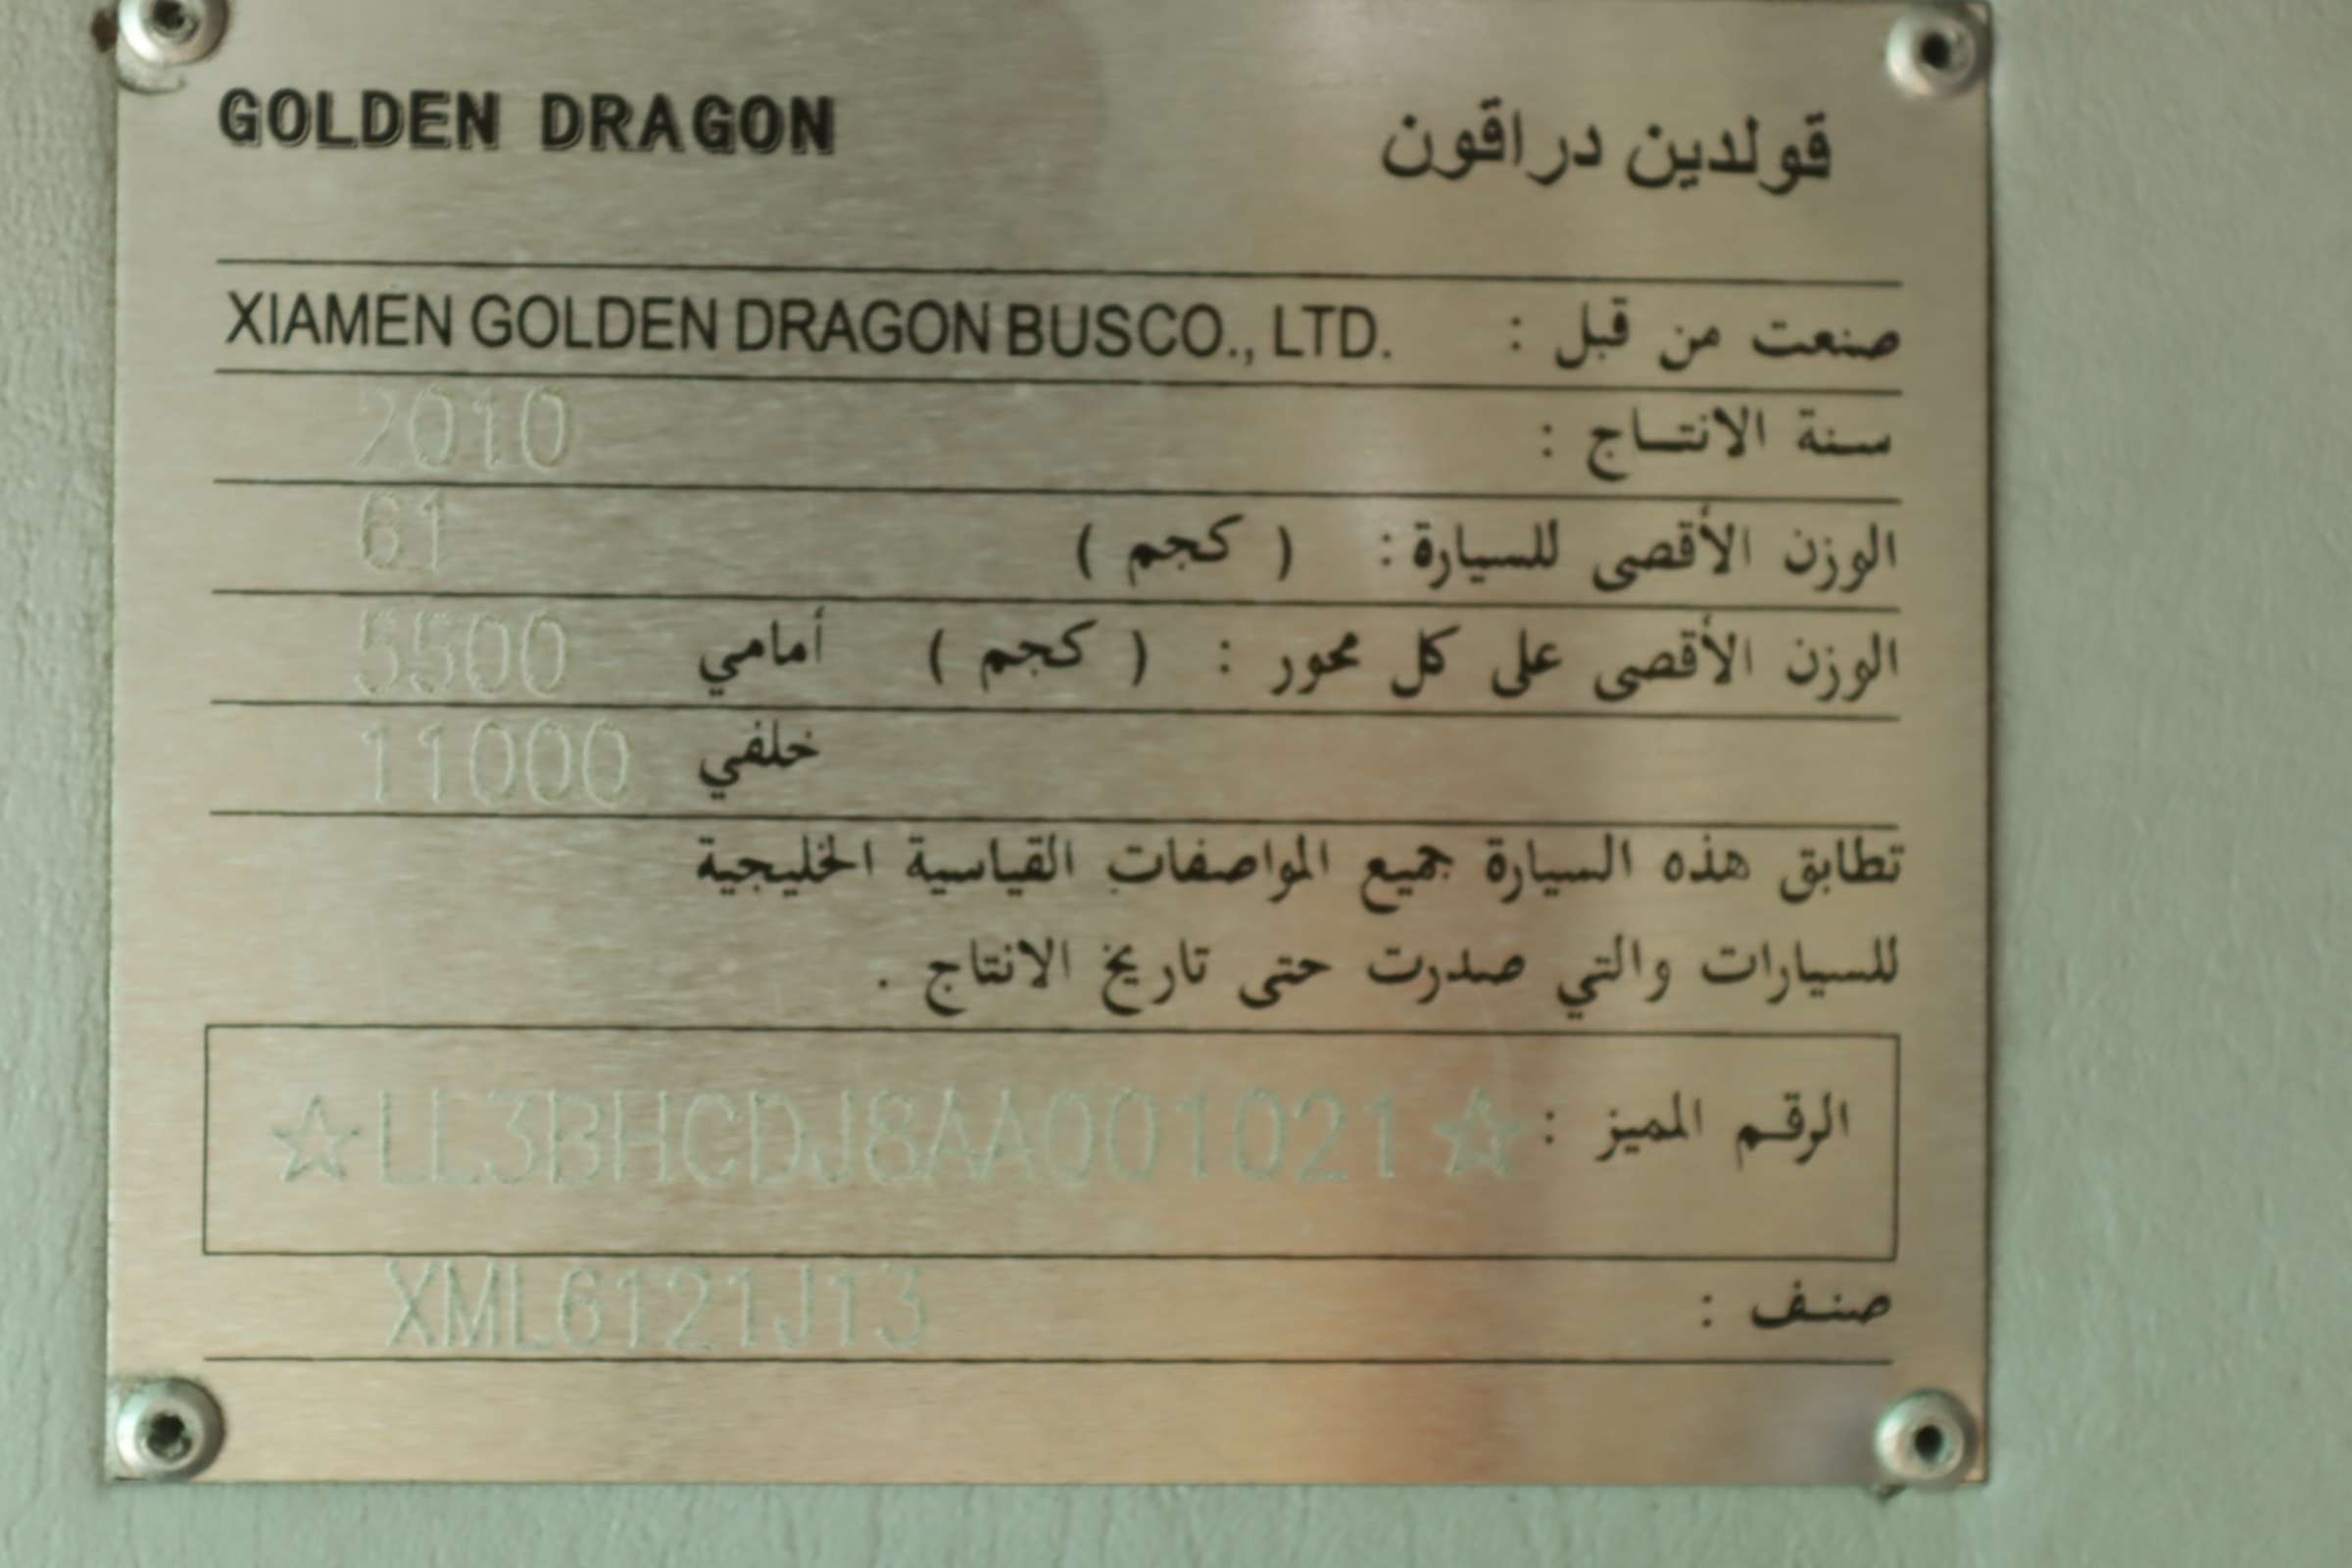 GOLDEN DRAGON قولدين دراقون
صنعت من قبل : XIAMEN GOLDEN DRAGON BUS CO., LTD.
سنة الانتاج : 2010
الوزن الأقصى للسيارة : ( كجم ) 61
الوزن الأقصى على كل محور : ( كجم ) أمامي 5500
خلفي 11000
تطابق هذه السيارة جميع المواصفات القياسية الخليجية
للسيارات والتي صدرت حتى تاريخ الانتاج .
الرقم المميز : ☆LL3BHCDJ8AA001021☆
صنف : XML6121J13